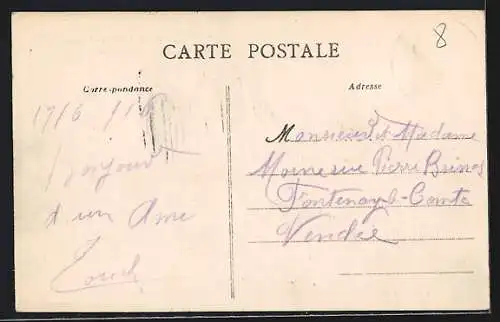 8
CARTE POSTALE
Correspondance
Adresse
17/6
Bonjour
d'un Ami
Monsieur et Madame
Moine rue Pierre
Fontenay-l-Comte
Vendée